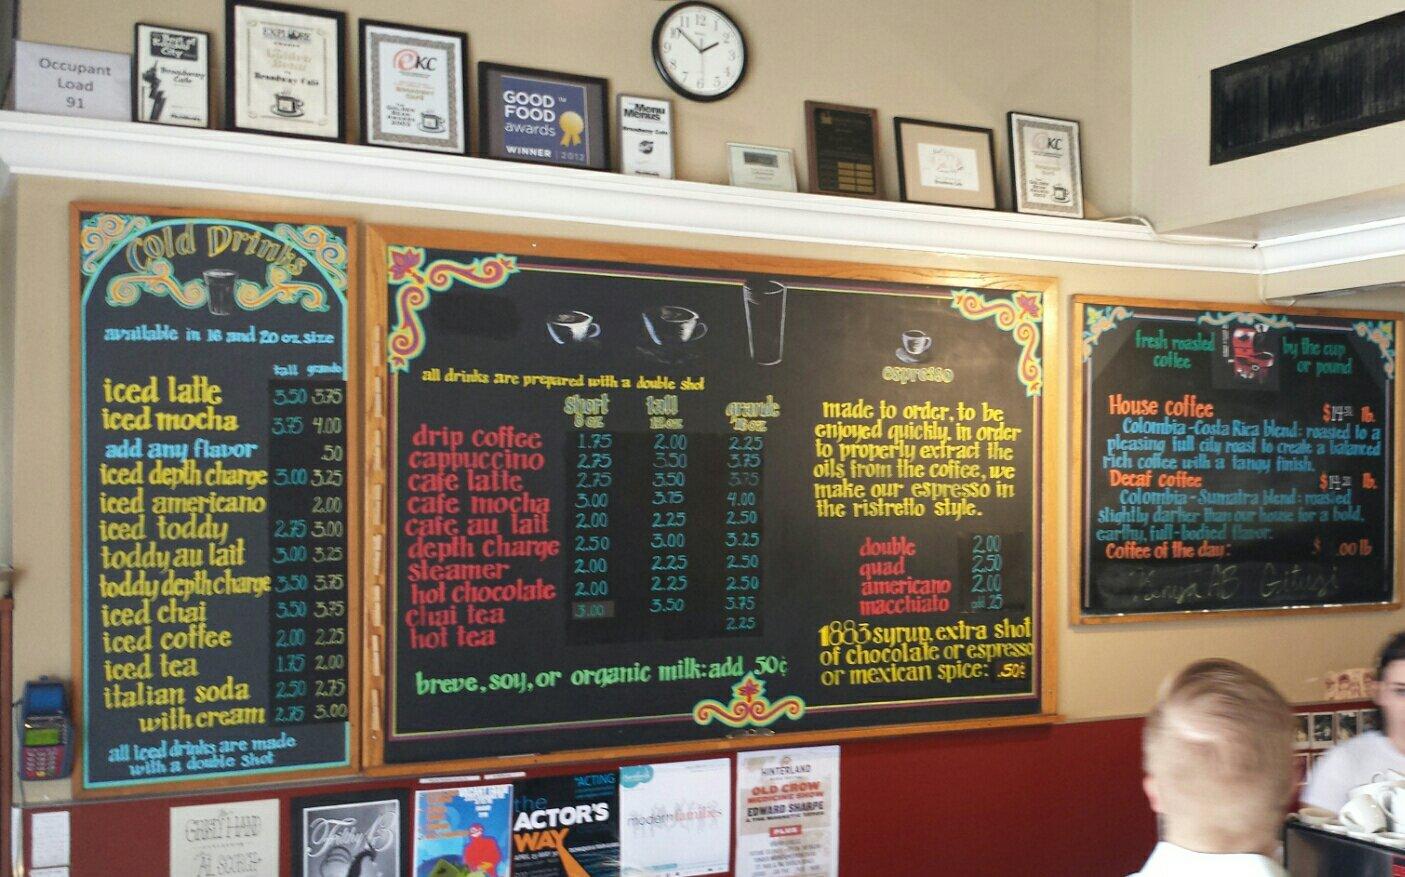 Occupant
Load
91
Best of
Kansas
City
Broadway
Cafe
EXPLORE
Broadway Café
eKC
GOOD
FOOD
awards
WINNER 2012
Menu
Menus
Broadway Cafe
eKC
Cold Drinks
available in 16 and 20 oz. size
tall grande
iced latte 3.50 3.75
iced mocha 3.75 4.00
add any flavor .50
iced depth charge 3.00 3.25
iced americano 2.00
iced toddy 2.75 3.00
toddy au lait 3.00 3.25
toddy depth charge 3.50 3.75
iced chai 3.50 3.75
iced coffee 2.00 2.25
iced tea 1.75 2.00
italian soda 2.50 2.75
with cream 2.75 3.00
all iced drinks are made
with a double shot
all drinks are prepared with a double shot
short tall grande
8 oz 12 oz 16 oz
drip coffee 1.75 2.00 2.25
cappuccino 2.75 3.50 3.75
cafe latte 2.75 3.50 3.75
cafe mocha 3.00 3.75 4.00
cafe au lait 2.00 2.25 2.50
depth charge 2.50 3.00 3.25
steamer 2.00 2.25 2.50
hot chocolate 2.00 2.25 2.50
chai tea 3.00 3.50 3.75
hot tea 2.25
breve, soy, or organic milk: add .50¢
espresso
made to order, to be
enjoyed quickly. in order
to properly extract the
oils from the coffee, we
make our espresso in
the ristretto style.
double 2.00
quad 2.50
americano 2.00
macchiato add .25
1883 syrup, extra shot
of chocolate or espresso
or mexican spice: .50¢
fresh roasted
coffee
by the cup
or pound
House coffee $14 lb.
Colombia-Costa Rica blend: roasted to a
pleasing full city roast to create a balanced
rich coffee with a tangy finish.
Decaf coffee $14 lb.
Colombia-Sumatra blend: roasted
slightly darker than our house for a bold,
earthy, full-bodied flavor.
Coffee of the day: $ .00 lb
Kenya AB
"ACTING
the
ACTOR'S
WAY
modern families
HINTERLAND
OLD CROW
MEDICINE SHOW
EDWARD SHARPE
PLUS